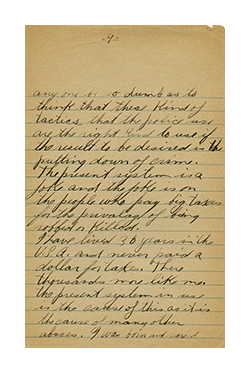 9
any one be so dumb as to
think that these kind of
tactics that the police use
are the right kind to use if
the result to be desired is the
putting down of crime.
The present system is a
joke and the joke is on
the people who pay big taxes
for the privalag of being
robbed or killed.
I have lived 36 years in the
U.S.A. and never paid a
dollar for taxes. There
thousands more like me.
the present system in use
is the cause of this as it is
the cause of many other
abuses. I was born and